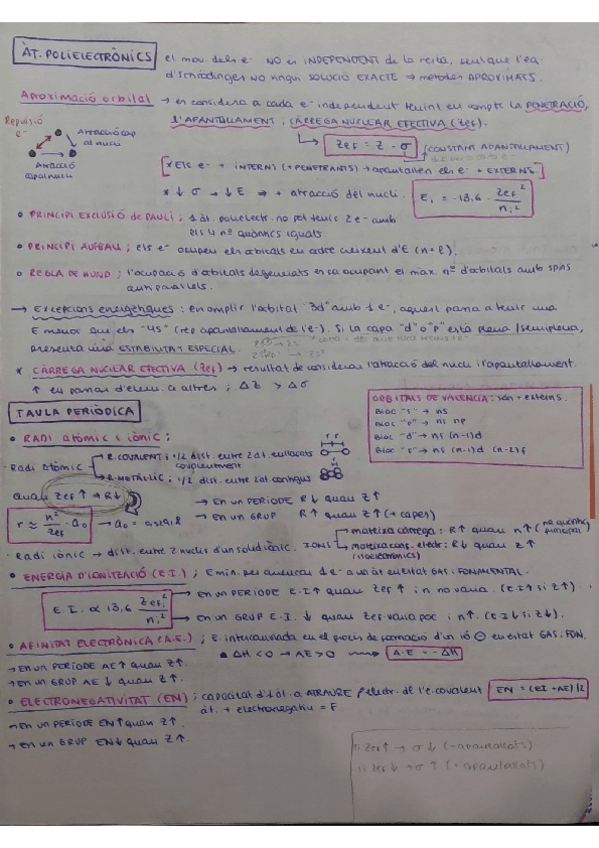 ÀT. POLIELECTRÒNICS el mov. dels e⁻ NO és INDEPENDENT de la resta, perquè l'eq.
d'Schrödinger NO tingui SOLUCIÓ EXACTE → mètodes APROXIMATS.
Aproximació orbital → es considera a cada e⁻ independent tenint en compte la PENETRACIÓ,
l'APANTALLAMENT i CÀRREGA NUCLEAR EFECTIVA (Zef).
Repulsió e⁻
Atracció cap al nucli
Atracció cap al nucli
Zef = Z - σ (CONSTANT APANTALLAMENT)
[* Els e⁻ + INTERNS (+ PENETRANTS) → apantallen els e⁻ + EXTERNS.]
* ↓ σ → ↓E ⇒ + atracció del nucli. Ei = -13,6 · Zef²/ni²
• PRINCIPI EXCLUSIÓ de PAULI ; 1 àt. polielectr. no pot tenir 2 e⁻ amb
els 4 nº quàntics iguals
• PRINCIPI AUFBAU ; els e⁻ ocupen els orbitals en ordre creixent d'E (n + l).
• REGLA DE HUND ; l'ocupació d'orbitals degenerats es fa ocupant el màx. nº d'orbitals amb spins
antiparal·lels.
→ Excepcions energètiques : en omplir l'orbital "3d" amb 1 e⁻, aquest passa a tenir una
E menor que els "4s" (rep apantallament de l'e⁻). Si la capa "d" o "p" està plena/semiplena,
presenta una ESTABILITAT ESPECIAL.
* CÀRREGA NUCLEAR EFECTIVA (Zef) → resultat de considerar l'atracció del nucli i l'apantallament.
↑ en passar d'elem. a altres ; ΔZ > Δσ
ORBITALS DE VALENCIA : són + externs.
Bloc "s" → ns
Bloc "p" → ns np
Bloc "d" → ns (n-1)d
Bloc "f" → ns (n-1)d (n-2)f
TAULA PERIÒDICA
• RADI atòmic i iònic ;
· Radi atòmic
R. COVALENT ; 1/2 dist. entre 2 àt. enllaçats
covalentment
R. METÀL·LIC ; 1/2 dist. entre 2 àt. contigus
quan Zef ↑ → R↓
r ≈ n²/Zef · a₀ → a₀ = 0,529 Å
→ En un PERÍODE R ↓ quan Z ↑
→ en un GRUP R ↑ quan Z ↑ (+ capes)
· Radi iònic → dist. entre 2 nuclis d'un sòlid iònic. IONS
mateixa càrrega : R ↑ quan n ↑ (nº quàntic principal)
mateixa conf. electr : R ↓ quan Z ↑
(isoelectrònics)
• ENERGIA D'IONITZACIÓ (E.I.) ; E mín. per arrencar 1 e⁻ a 1 àt en estat GAS i FONAMENTAL.
E.I. ∝ 13,6 Zefi²/ni²
→ en un PERÍODE E.I ↑ quan Zef ↑ i n no varia. (E.I ↑ si Z ↑)
→ en un GRUP E.I. ↓ quan Zef varia poc i n ↑. (E.I ↓ si Z ↓).
• AFINITAT ELECTRÒNICA (A.E.) ; E. intercanviada en el procés de formació d'un ió ⊖ en estat GAS i FON.
• ΔH < 0 → AE > 0 → A.E = -ΔH
→ En un PERÍODE AE ↑ quan Z ↑.
→ En un GRUP AE ↓ quan Z ↑.
• ELECTRONEGATIVITAT (EN) ; capacitat d'1 àt. a ATRAURE p electr. de l'e. covalent EN = (EI + AE) / 2
àt. + electronegatiu = F
→ En un PERÍODE EN ↑ quan Z ↑.
→ En un GRUP EN ↓ quan Z ↑.
Si Zef ↑ → σ ↓ (- apantallats)
Si Zef ↓ → σ ↑ (+ apantallats)